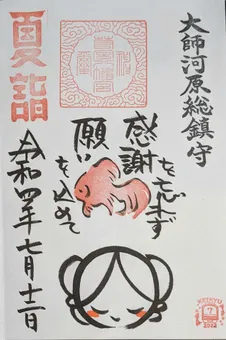 大師河原総鎮守
感謝を忘れず
願いを込めて
夏詣
令和四年七月十二日